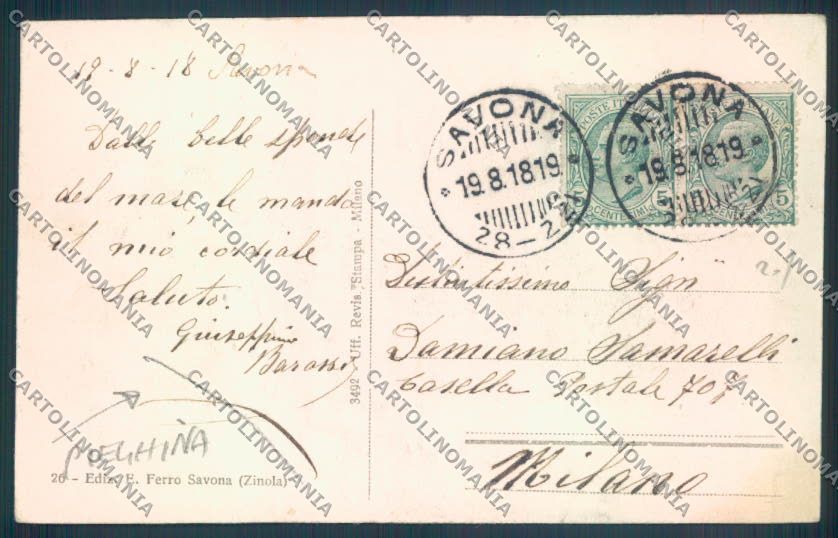 19-8-18 Savona
Dalle belle sponde
del mare, le manda
il mio cordiale
Saluto.
Giuseppina
Barossi
PIEGHINA
26 - Ediz. E. Ferro Savona (Zinola)
3492 - Uff. Revis. Stampa - Milano
SAVONA
19.8.18 19
28-22
SAVONA
19.8.18 19
POSTE ITALIANE
CENTESIMI 5
Distintissimo Sign
Damiano Samarelli
Casella Postale 707
Milano
CARTOLINOMANIA